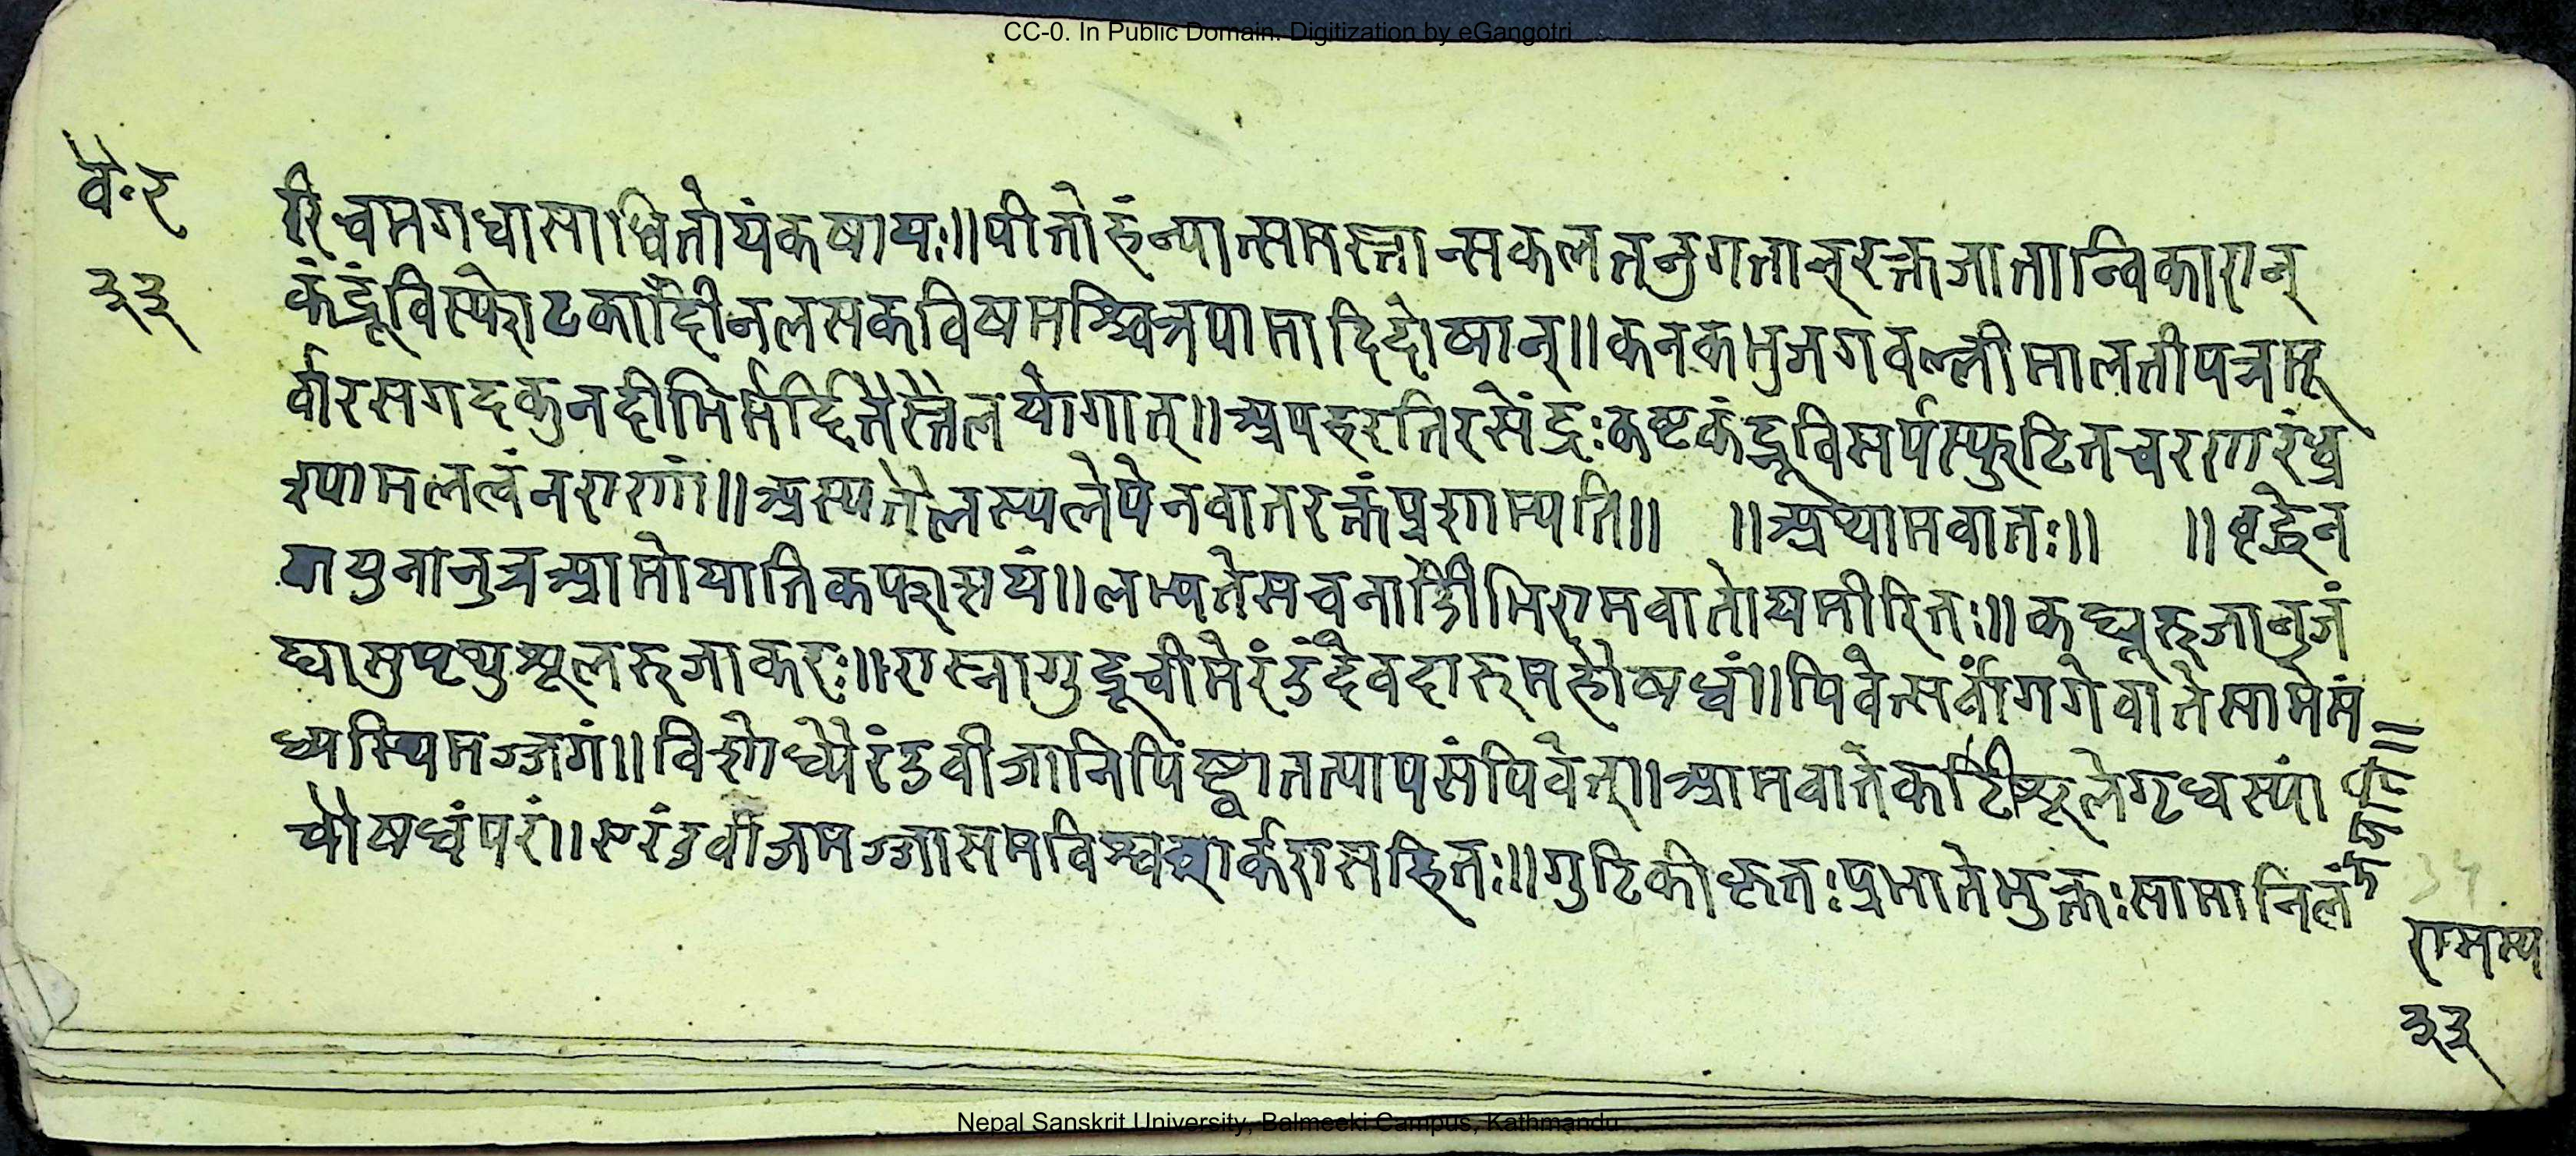 CC-0. In Public Domain. Digitization by eGangotri
वै॰र
३३
रिचमगधासाधितोयंकषायः॥पीतोहंन्यात्समस्तान्सकलतनुगतान्रक्तजातान्विकारान्
कंडूंविस्फोटकादीनलसकविषमश्चित्रपामादिदोषान्॥कनकभुजगवल्लीमालतीपत्रमू
र्वारसगदकुनटीभिर्मर्दितैस्तैलयोगात्॥अपहरतिरसेंद्रःकष्टकंडूविसर्पस्फुटितचरणरंध्र
श्यामलत्वंनराणां॥अस्यतैलस्यलेपेनवातरक्तंप्रशाम्यति॥ ॥अथामवातः॥ ॥वृद्धेन
वायुनानुन्नआमोयातिकफाशयं॥लभ्यतेसचनाडीभिरामवातोयमीरितः॥कट्यूरुजानुजं
घामुष्टथुशूलरुजाकरः॥रास्नागुडूचीमेरंडंदेवदारुमहौषधं॥पिवेत्सर्वांगगेवातेसामेसं
ध्यस्थिमज्जगे॥विशोध्यैरंडवीजानिपिष्ट्वातत्पायसंपिवेत्॥आमवातेकटीशूलेगृध्रस्यां
चौषधंपरं॥एरंडवीजमज्जासमविश्वशर्करासहितः॥गुटिकीकृतःप्रभातेभुक्तःसामानिलं
रामस्य
३३
Nepal Sanskrit University, Balmeeki Campus, Kathmandu